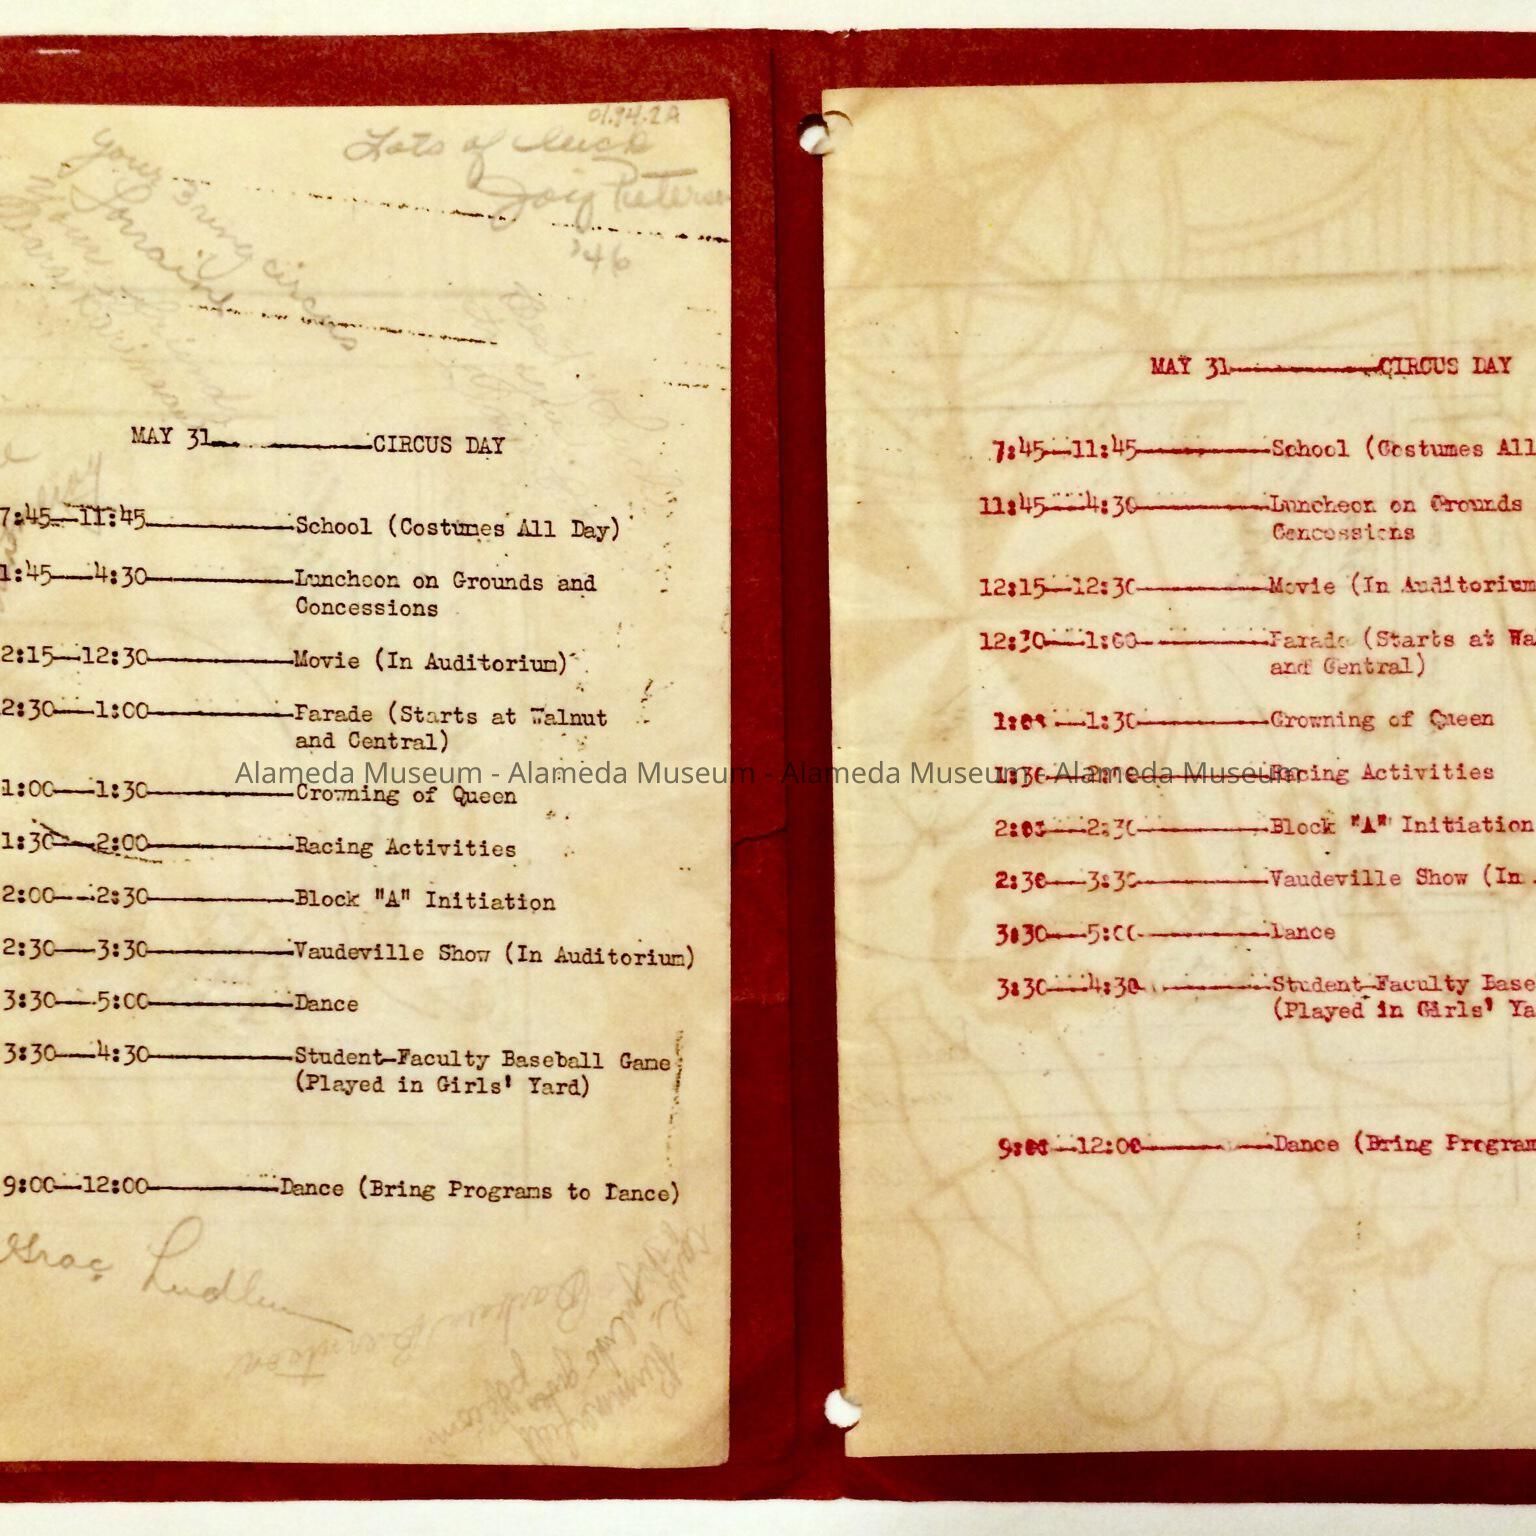 01.94.2A
Lots of luck
Joy Peterse
'46
your 3 ring circus
Lorraine
MAY 31 CIRCUS DAY
7:45—11:45 School (Costumes All Day)
1:45—4:30 Luncheon on Grounds and
Concessions
2:15—12:30 Movie (In Auditorium)
2:30—1:00 Parade (Starts at Walnut
and Central)
1:00—1:30 Crowning of Queen
1:30—2:00 Racing Activities
2:00—2:30 Block "A" Initiation
2:30—3:30 Vaudeville Show (In Auditorium)
3:30—5:00 Dance
3:30—4:30 Student-Faculty Baseball Game
(Played in Girls' Yard)
9:00—12:00 Dance (Bring Programs to Dance)
Grace Ludlum
Barbara
MAY 31 CIRCUS DAY
7:45—11:45 School (Costumes All
11:45—4:30 Luncheon on Grounds
Concessions
12:15—12:30 Movie (In Auditorium
12:30—1:00 Parade (Starts at Wa
and Central)
1:00—1:30 Crowning of Queen
1:30—2:00 Racing Activities
2:00—2:30 Block "A" Initiation
2:30—3:30 Vaudeville Show (In
3:30—5:00 Dance
3:30—4:30 Student-Faculty Base
(Played in Girls' Ya
9:00—12:00 Dance (Bring Program
Alameda Museum - Alameda Museum - Alameda Museum - Alameda Museum